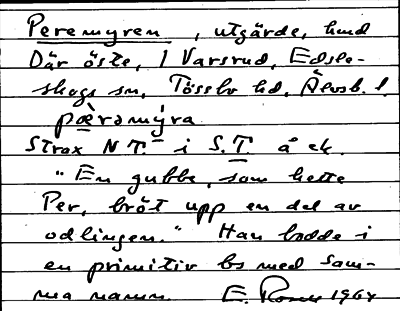 Peremyren, utgärde, hmd
Där öste, 1 Varsrud, Edsle-
skogs sn, Tössbo hd, Älvsb. l.
pæ̀rəmýra
Strax N T:- i S.T. å ek.
"En gubbe, som hette
Per, bröt upp en del av
odlingen." Han bodde i
en primitiv bs med sam-
ma namn. E. 1964